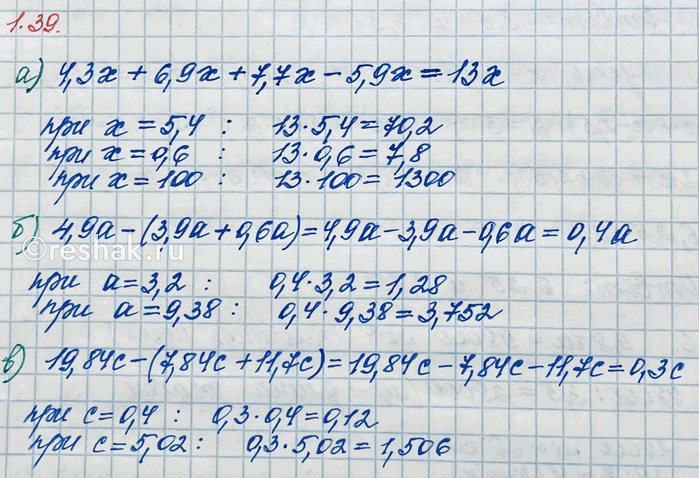 1.39.
а) 4,3x + 6,9x + 7,7x - 5,9x = 13x
при x = 5,4 : 13·5,4 = 70,2
при x = 0,6 : 13·0,6 = 7,8
при x = 100 : 13·100 = 1300
б) 4,9a - (3,9a + 0,6a) = 4,9a - 3,9a - 0,6a = 0,4a
reshak.ru
при a = 3,2 : 0,4·3,2 = 1,28
при a = 9,38 : 0,4·9,38 = 3,752
в) 19,84c - (7,84c + 11,7c) = 19,84c - 7,84c - 11,7c = 0,3c
при c = 0,4 : 0,3·0,4 = 0,12
при c = 5,02 : 0,3·5,02 = 1,506